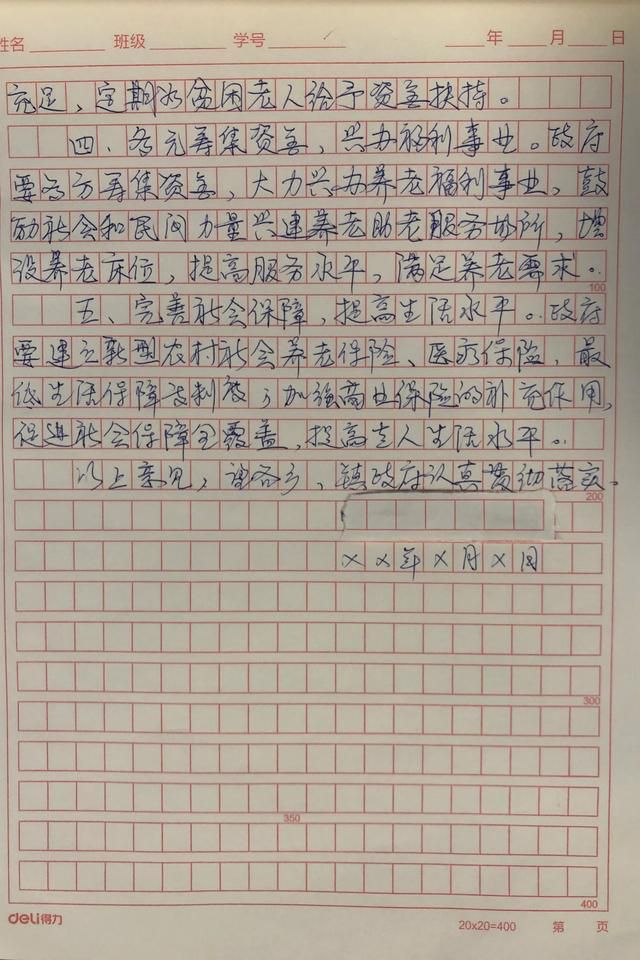 姓名 班级 学号 年 月 日
充足，定期为贫困老人给予资金扶持。
四、多元筹集资金，兴办福利事业。政府
要多方筹集资金，大力兴办养老福利事业，鼓
励社会和民间力量兴建养老助老服务场所，增
设养老床位，提高服务水平，满足养老需求。
100
五、完善社会保障，提高生活水平。政府
要建立新型农村社会养老保险、医疗保险、最
低生活保障及制度，加强商业保险的补充作用，
促进社会保障全覆盖，提高老人生活水平。
以上意见，请各乡，镇政府认真贯彻落实。
200
××年×月×日
300
350
400
deli得力
20x20=400 第 页